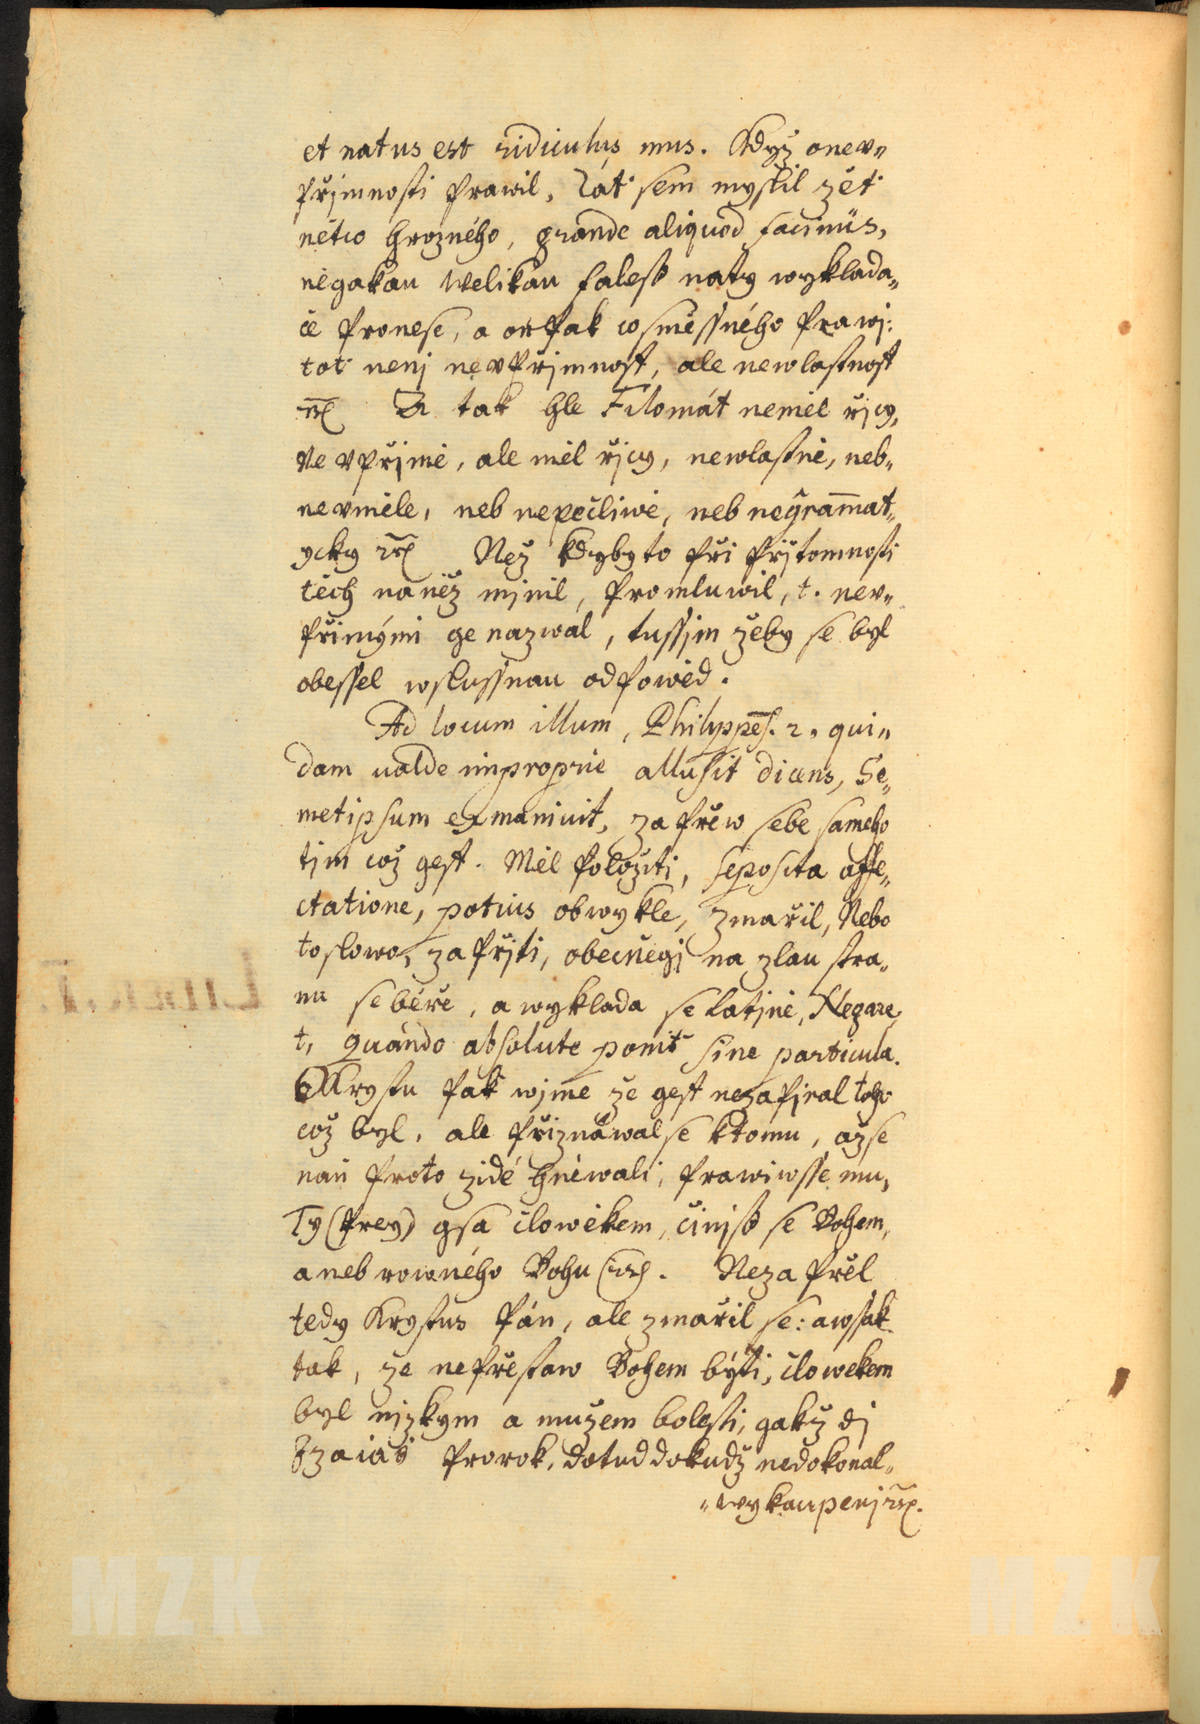 et natus est ridiculus mus. Když o nev„
přjmnosti prawil, Ját sem myslil žet
něco hrozného, grande aliquod facinus,
negakau Welikau faleß na ty wyklada„
če pronese, a on pak co směssného prawj:
tot nenj nevpřjmnost, ale newlastnost
ꝛč A tak hle Filomát neměl řjcy,
Ne vpřjmě, ale měl řjcy, newlastně, neb„
nevměle, neb nepečliwě, neb negram̄at„
ycky ꝛč Než kdyby to při přjtomnosti
těch na něž mjnil, promluwil, t. nev„
přjmými ge nazwal, tussjm žeby se byl
obessel w slussnau odpowěd.
Ad locum illum, Philippeñ. 2. qui„
dam ualde improprie allusit dicens, Se„
metipsum exinaniuit, zapřew sebe sameho
tjm což gest. Měl položiti, seposita affe„
ctatione, potius obwykle, zmařil, Nebo
to slowo, zapřjti, obecněgj na zlau stra„
nu se béře, a wyklada se Latjně, Negare
t, quando absolute ponit sine particula.
O Krystu pak wjme že gest nezapjral toho
což byl, ale přiznáwal se k tomu, až se
naň proto židé hněwali, prawiwsse mu,
Ty (prey) gsa člowěkem, činjß se Bohem,
aneb rowného Bohu ꝛč. Nezapřel
tedy Krystus Pán, ale zmařil se: awsak
tak, že nepřestaw Bohem býti, člowěkem
byl njzkym a mužem bolesti, gakž dj
Izaiáš prorok, dotud dokudž nedokonal„
„wykaupenj ꝛč.
LIBER. I.
MZK
MZK